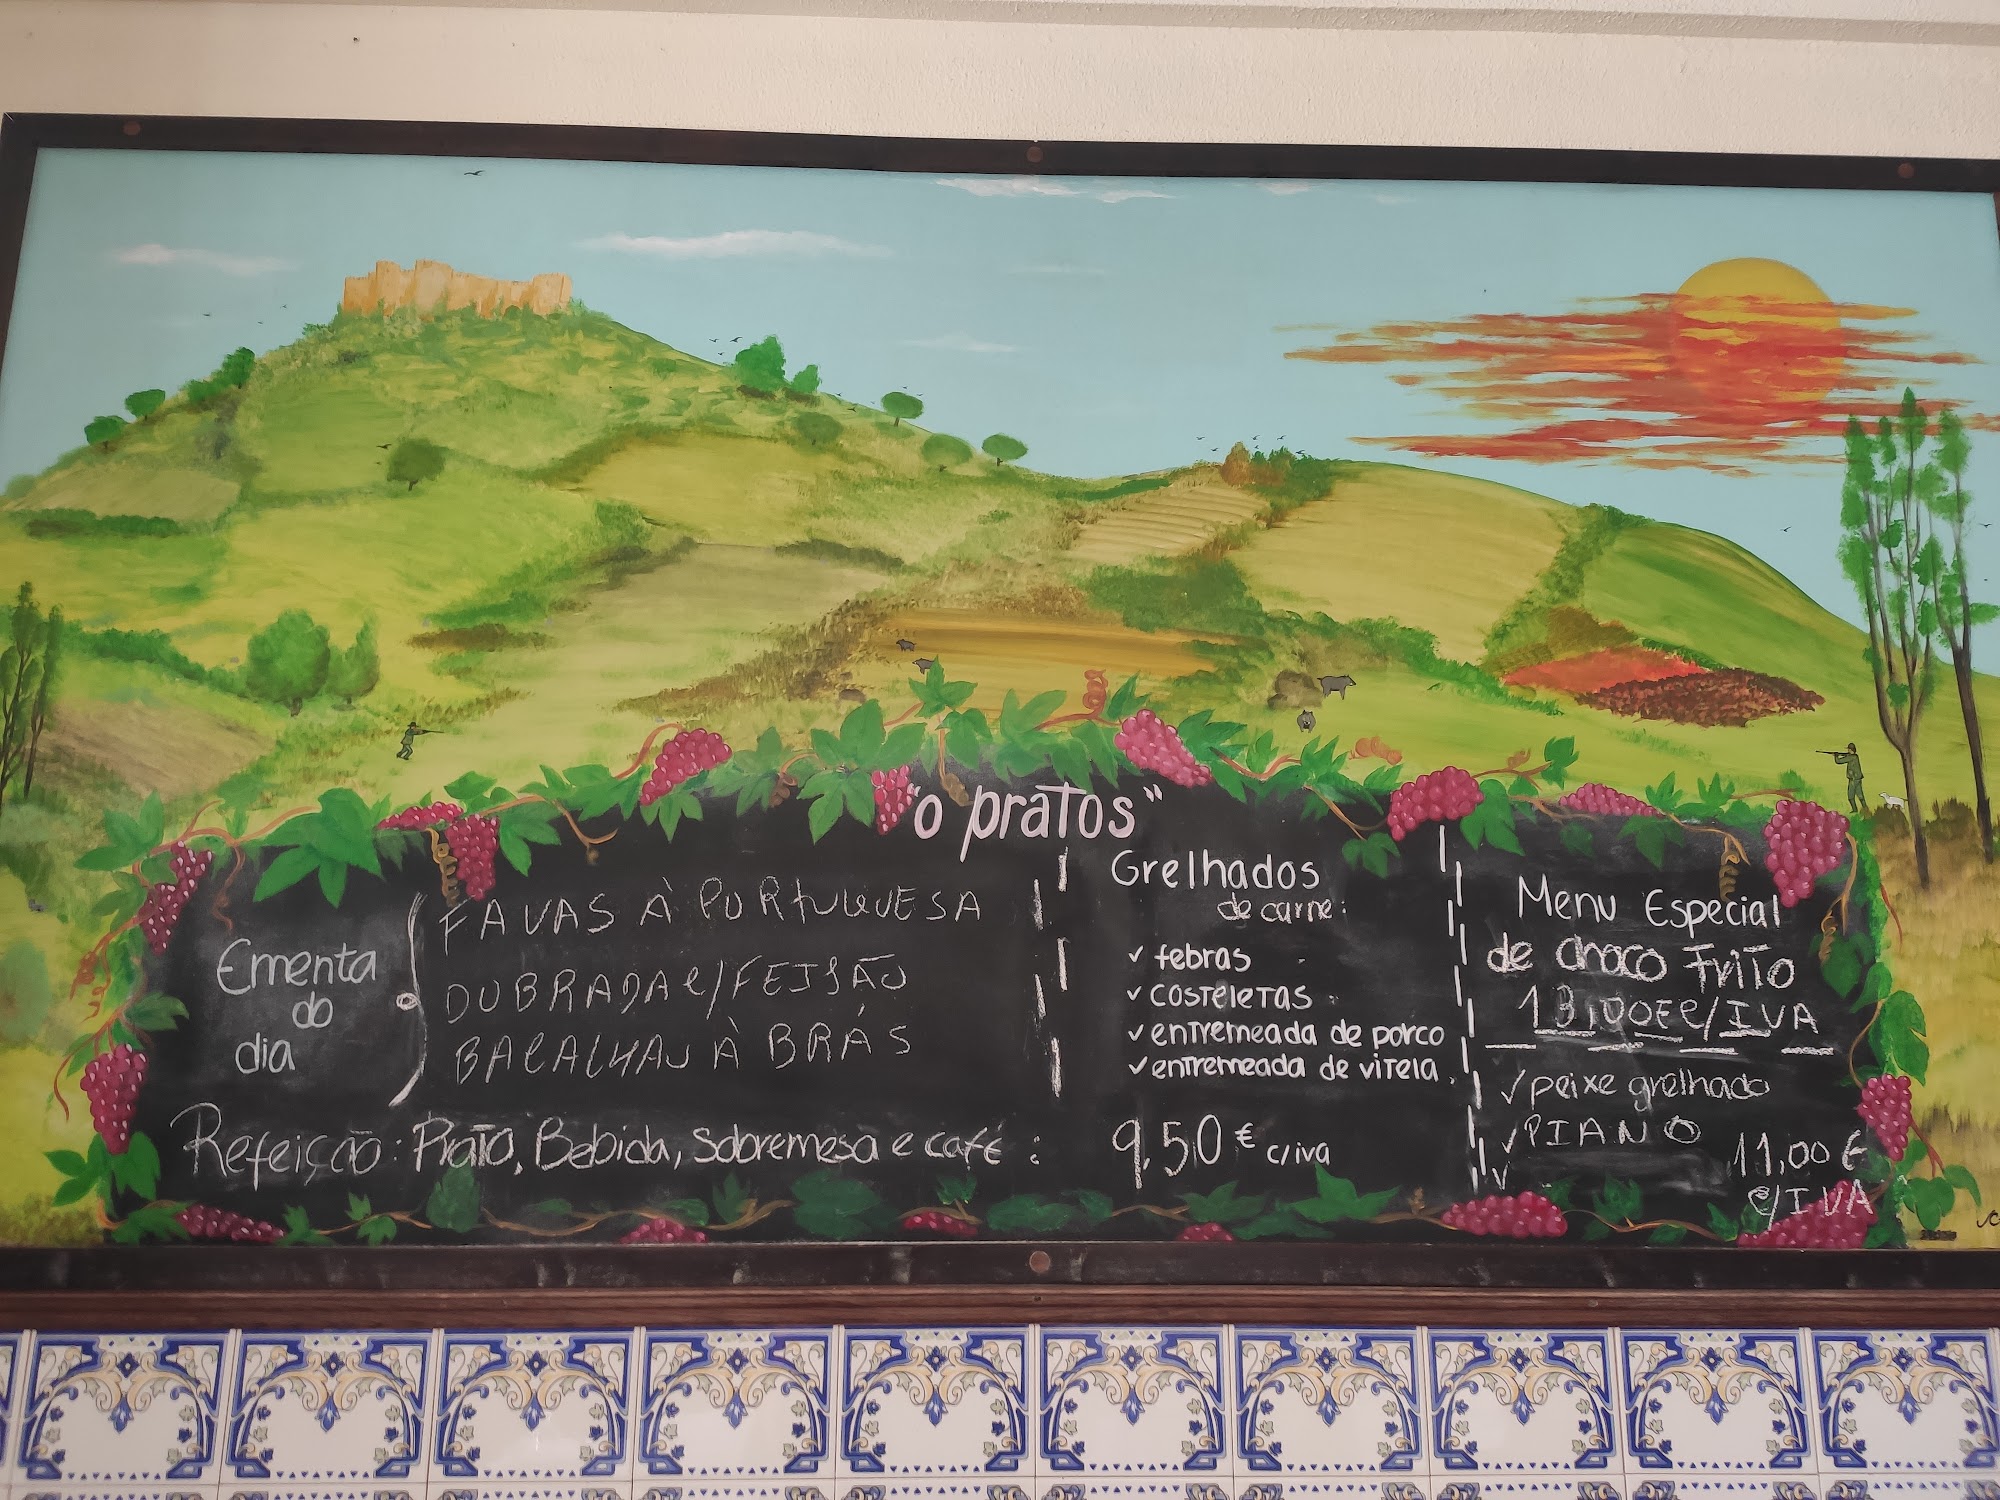 "o pratos"
Ementa
do
dia
FAVAS À PORTUGUESA
DOBRADA C/FEIJÃO
BACALHAU À BRÁS
Refeição: Prato, Bebida, sobremesa e café :
Grelhados
de carne:
✓ febras
✓ costeletas
✓ entremeada de porco
✓ entremeada de vitela.
9,50 € c/iva
Menu Especial
de choco Frito
13,00€ C/IVA
✓ peixe grelhado
✓ PIANO
✓
11,00 €
C/IVA